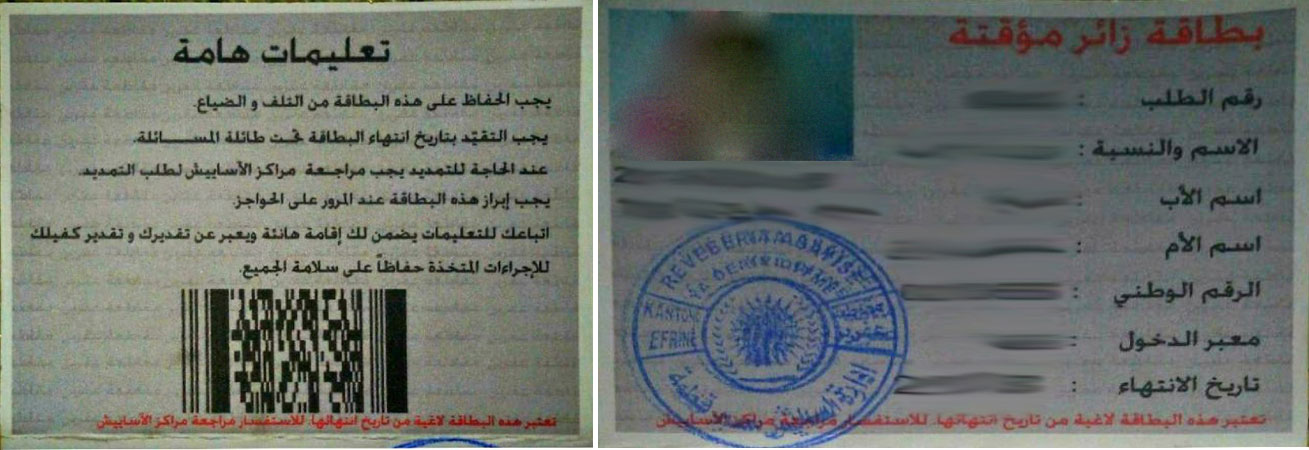 تعليمات هامة
يجب الحفاظ على هذه البطاقة من التلف و الضياع.
يجب التقيّد بتاريخ انتهاء البطاقة تحت طائلة المســـاءلة.
عند الحاجة للتمديد يجب مراجعة مراكز الأساييش لطلب التمديد.
يجب إبراز هذه البطاقة عند المرور على الحواجز.
اتباعك للتعليمات يضمن لك إقامة هانئة ويعبر عن تقديرك و تقدير كفيلك
للإجراءات المتخذة حفاظاً على سلامة الجميع.
تعتبر هذه البطاقة لاغية من تاريخ انتهائها. للاستفسار مراجعة مراكز الأساييش
بطاقة زائر مؤقتة
رقم الطلب :
الاسم والنسبة :
اسم الأب :
اسم الأم :
الرقم الوطني :
معبر الدخول :
تاريخ الانتهاء :
تعتبر هذه البطاقة لاغية من تاريخ انتهائها. للاستفسار مراجعة مراكز الأساييش
KANTONA
EFRINÊ